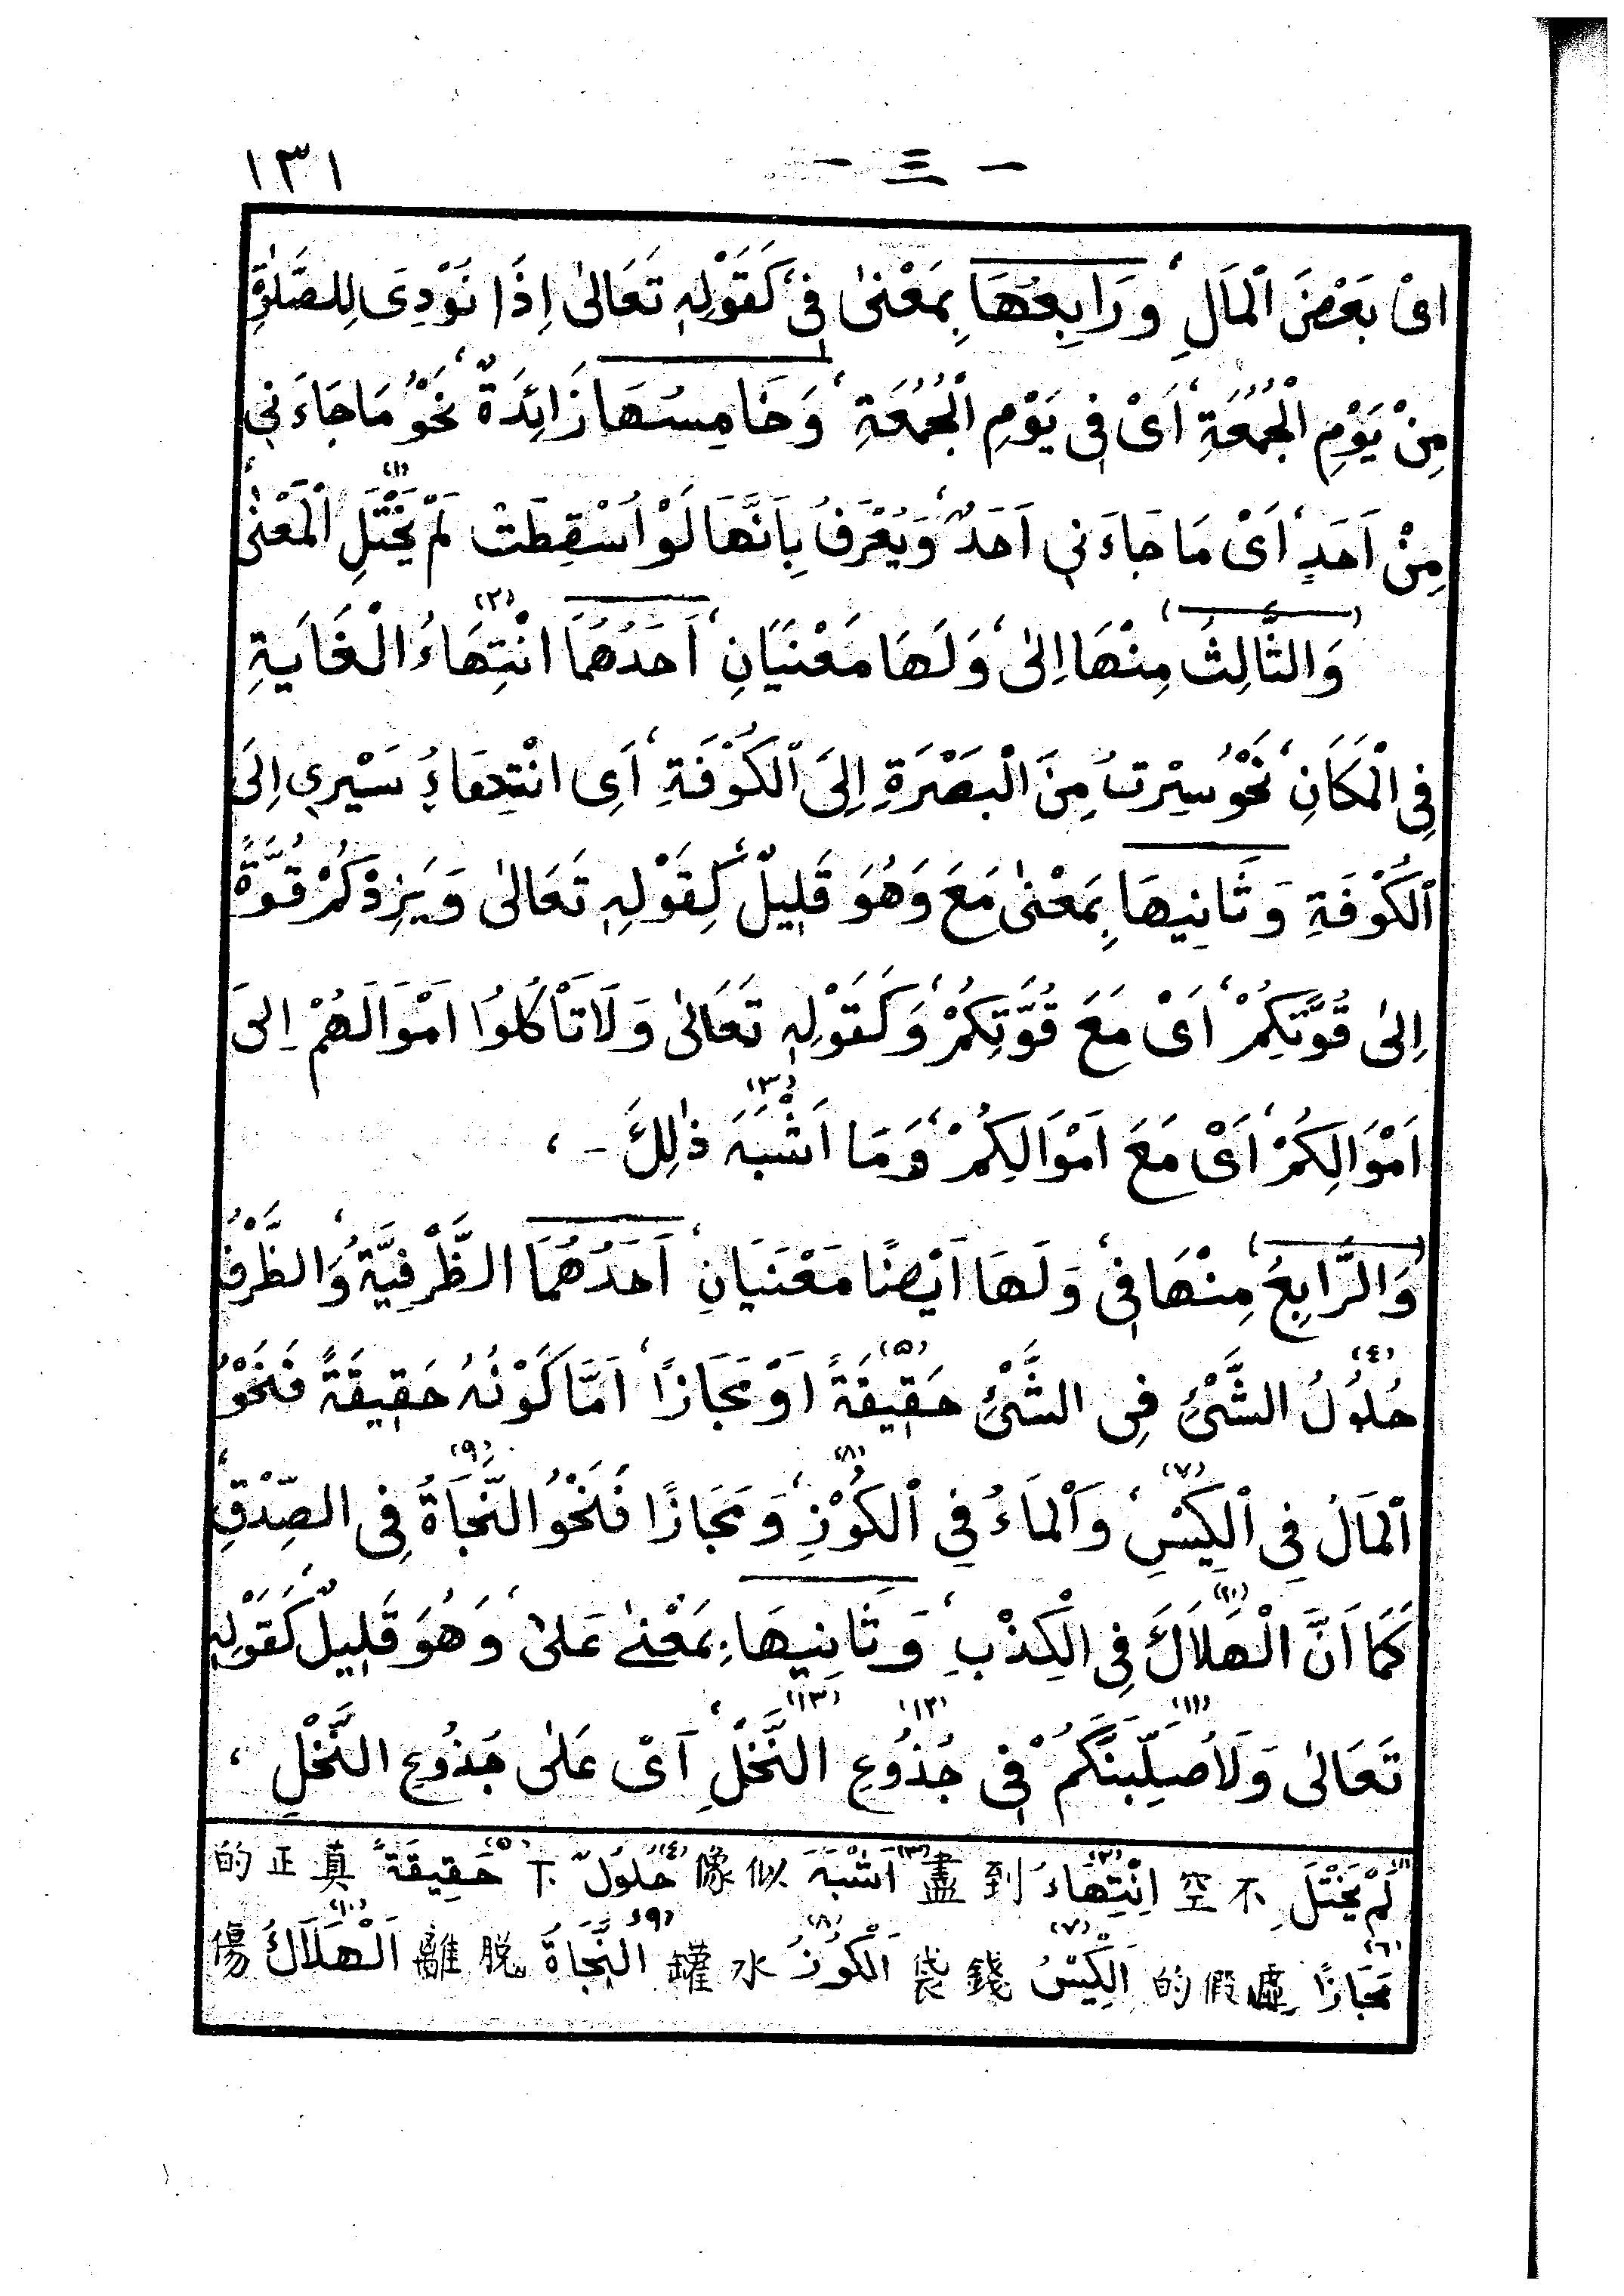 - ٣ - ١٣١
اىْ بَعْضَ الْمَالِ، وَرَابِعُهَا بِمَعْنىٰ فِى، كَقَوْلِهٖ تَعَالىٰ اِذَا نُوْدِىَ لِلصَّلٰوةِ
مِنْ يَوْمِ الْجُمُعَةِ، اَىْ فِى يَوْمِ الْجُمُعَةِ، وَخَامِسُهَا زَائِدَةٌ، نَحْوُ مَا جَاءَنِي
مِنْ اَحَدٍ، اَىْ مَا جَاءَنِي اَحَدٌ، وَيُعْرَفُ بِاَنَّهَا لَوْ اُسْقِطَتْ لَمْ يَخْتَلِ (١) الْمَعْنىٰ،
(وَالثَّالِثُ) مِنْهَا اِلىٰ، وَلَهَا مَعْنَيَانِ، اَحَدُهُمَا انْتِهَاءُ (٢) الْغَايَةِ
فِى الْمَكَانِ، نَحْوُ سِيْرتُ مِنَ الْبَصْرَةِ اِلىَ الْكُوْفَةِ، اَىِ انْتِهَاءُ سَيْرِي اِلىَ
الْكُوْفَةِ وَثَانِيهَا بِمَعْنىٰ مَعَ وَهُوَ قَلِيلٌ، كَقَوْلِهٖ تَعَالىٰ وَيَزِدْكُمْ قُوَّةً
اِلىٰ قُوَّتِكُمْ، اَىْ مَعَ قُوَّتِكُمْ، وَكَقَوْلِهٖ تَعَالىٰ وَلَا تَأْكُلُوا اَمْوَالَهُمْ اِلىَ
اَمْوَالِكُمْ، اَىْ مَعَ اَمْوَالِكُمْ، وَمَا اَشْبَهَ (٣) ذٰلِكَ - ،
(وَالرَّابِعُ) مِنْهَا فِى، وَلَهَا اَيْضًا مَعْنَيَانِ، اَحَدُهُمَا الظَّرْفِيَّةُ، وَالظَّرْفُ
حُلُولُ (٤) الشَّىْئِ فِى الشَّىْئِ حَقِيقَةً (٥) اَوْ مَجَازًا، اَمَّا كَوْنُهُ حَقِيقَةً فَنَحْوُ
الْمَالُ فِى الْكِيْسِ (٧)، وَالْمَاءُ فِى الْكُوْزِ (٨)، وَمَجَازًا فَنَحْوُ النَّجَاةُ (٩) فِى الصِّدْقِ،
كَمَا اَنَّ الْهَلَاكَ (١٠) فِى الْكِذْبِ، وَثَانِيهَا بِمَعْنىٰ عَلىٰ، وَهُوَ قَلِيلٌ، كَقَوْلِهٖ
تَعَالىٰ وَلَاُصَلِّبَنَّكُمْ (١١) فِى جُذُوعِ (١٢) النَّخْلِ (١٣)، اَىْ عَلىٰ جُذُوعِ النَّخْلِ ،
(١) لَمْ يَخْتَلَّ 不空 (٢) اِنْتِهَاءُ 到盡 (٣) اَشْبَهَ 似像 (٤) حُلُولٌ 下 (٥) حَقِيقَةً 真正的
(٦) مَجَازًا 虛假的 (٧) اَلْكِيْسُ 錢袋 (٨) اَلْكُوْزُ 水罐 (٩) النَّجَاةُ 脫離 (١٠) اَلْهَلَاكُ 傷